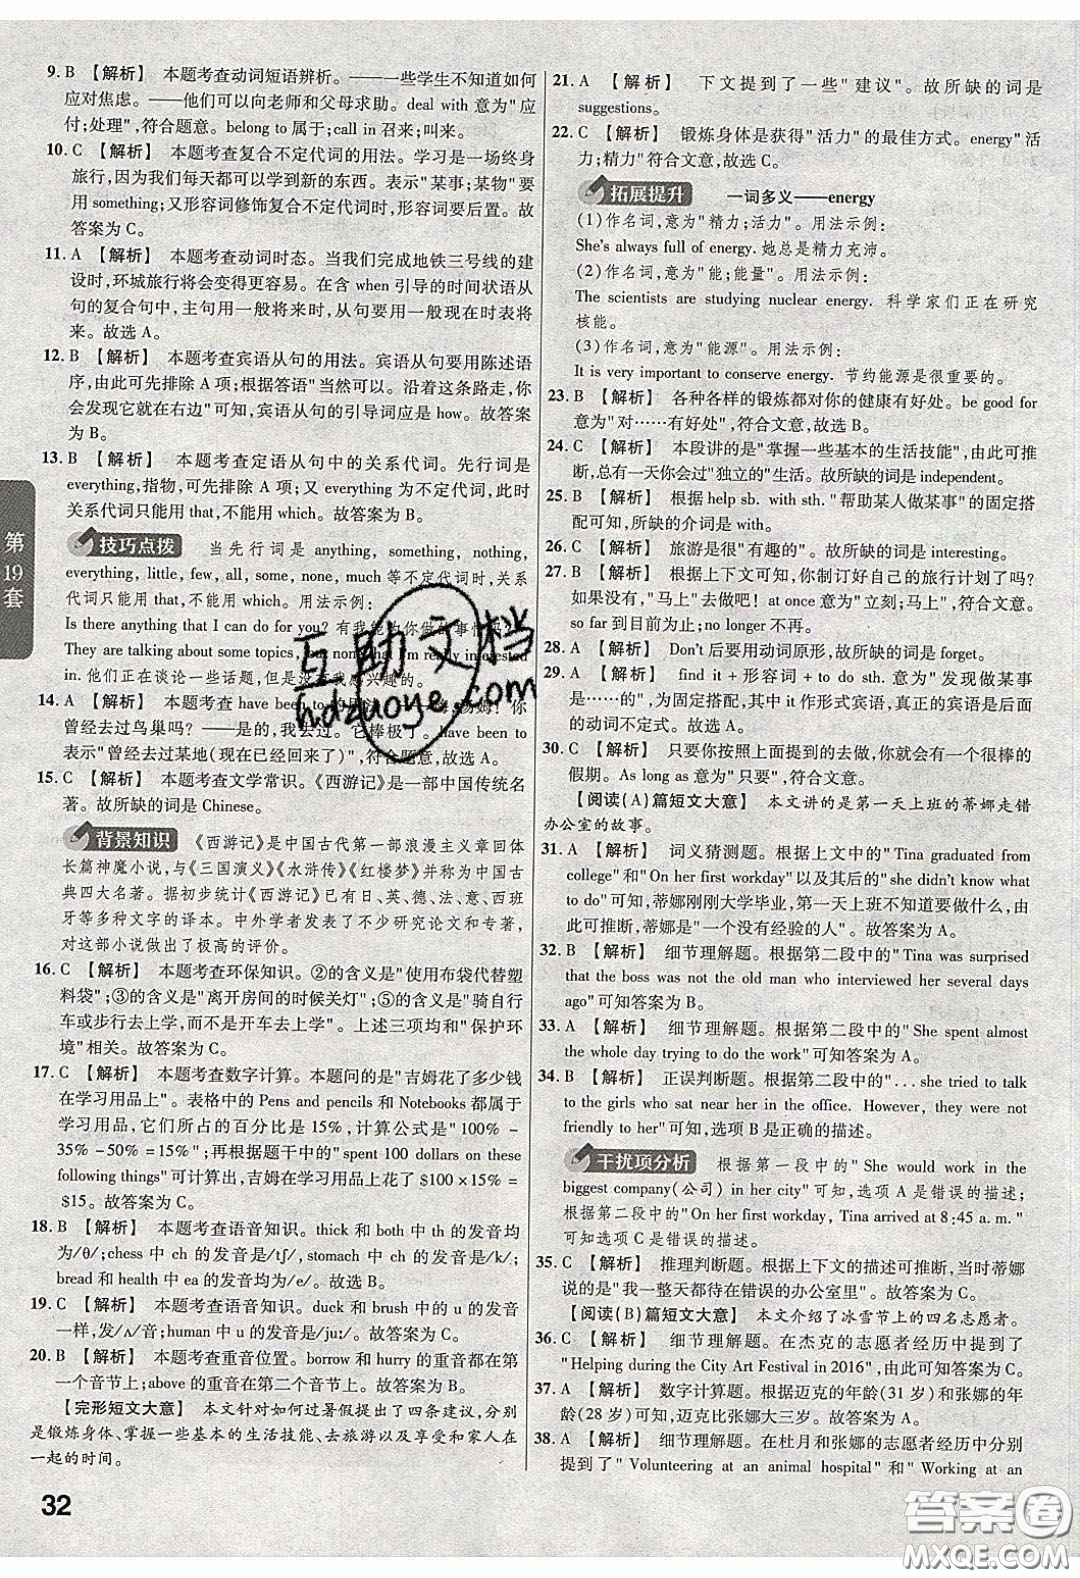 9. B 【解析】 本题考查动词短语辨析。——一些学生不知道如何
应对焦虑。——他们可以向老师和父母求助。deal with 意为"应
付;处理",符合题意。belong to 属于;call in 召来;叫来。
10. C 【解析】 本题考查复合不定代词的用法。学习是一场终身
旅行,因为我们每天都可以学到新的东西。表示"某事;某物"要
用 something;又形容词修饰复合不定代词时,形容词要后置。故
答案为 C。
11. A 【解析】 本题考查动词时态。当我们完成地铁三号线的建
设时,环城旅行将会变得更容易。在含 when 引导的时间状语从
句的复合句中,主句用一般将来时,从句要用一般现在时表将
来。故选 A。
12. B 【解析】 本题考查宾语从句的用法。宾语从句要用陈述语
序,由此可先排除 A 项;根据答语"当然可以。沿着这条路走,你
会发现它就在右边"可知,宾语从句的引导词应是 how。故答案
为 B。
13. B 【解析】 本题考查定语从句中的关系代词。先行词是
everything,指物,可先排除 A 项;又 everything 是不定代词,此时
关系代词只能用 that,不能用 which。故答案为 B。
技巧点拨 当先行词是 anything, something, nothing,
everything, little, few, all, some, none, much 等不定代词时,关系
代词只能用 that,不能用 which。用法示例:
Is there anything that I can do for you? 有我能为你做的事情吗?
They are talking about some topics, but none that I'm really interested
in. 他们正在谈论一些话题,但是没有我感兴趣的。
14. A 【解析】 本题考查 have been to 的用法。 你
曾经去过鸟巢吗? ——是的,我去过。它棒极了。have been to
表示"曾经去过某地(现在已经回来了)",符合题意,故选 A。
15. C 【解析】 本题考查文学常识。《西游记》是一部中国传统名
著。故所缺的词是 Chinese。
背景知识 《西游记》是中国古代第一部浪漫主义章回体
长篇神魔小说,与《三国演义》《水浒传》《红楼梦》并称为中国古
典四大名著。据初步统计《西游记》已有日、英、德、法、意、西班
牙等多种文字的译本。中外学者发表了不少研究论文和专著,
对这部小说做出了极高的评价。
16. C 【解析】 本题考查环保知识。②的含义是"使用布袋代替塑
料袋";③的含义是"离开房间的时候关灯";⑤的含义是"骑自行
车或步行去上学,而不是开车去上学"。上述三项均和"保护环
境"相关。故答案为 C。
17. C 【解析】 本题考查数字计算。本题问的是"吉姆花了多少钱
在学习用品上"。表格中的 Pens and pencils 和 Notebooks 都属于
学习用品,它们所占的百分比是 15%,计算公式是"100%
- 35% - 50% = 15%";再根据题干中的"spent 100 dollars on these
following things"可知,吉姆在学习用品上花了 $100 × 15% =
$15。故答案为 C。
18. B 【解析】 本题考查语音知识。thick 和 both 中 th 的发音均
为/θ/;chess 中 ch 的发音是/tʃ/, stomach 中 ch 的发音是/k/;
bread 和 health 中 ea 的发音均为/e/。故选 B。
19. C 【解析】 本题考查语音知识。duck 和 brush 中的 u 的发音
一样,发/ʌ/音;human 中 u 的发音是/juː/。故答案为 C。
20. B 【解析】 本题考查重音位置。borrow 和 hurry 的重音都在第
一个音节上;above 的重音在第二个音节上。故答案为 B。
【完形短文大意】 本文针对如何过暑假提出了四条建议,分别
是锻炼身体、掌握一些基本的生活技能、去旅游以及享受和家人在
一起的时间。
32
第19套
21. A 【解析】 下文提到了一些"建议"。故所缺的词是
suggestions。
22. C 【解析】 锻炼身体是获得"活力"的最佳方式。energy"活
力;精力"符合文意,故选 C。
拓展提升 一词多义——energy
(1)作名词,意为"精力;活力"。用法示例:
She's always full of energy.她总是精力充沛。
(2)作名词,意为"能;能量"。用法示例:
The scientists are studying nuclear energy. 科学家们正在研究
核能。
(3)作名词,意为"能源"。用法示例:
It is very important to conserve energy. 节约能源是很重要的。
23. B 【解析】 各种各样的锻炼都对你的健康有好处。be good for
意为"对……有好处",符合文意,故选 B。
24. C 【解析】 本段讲的是"掌握一些基本的生活技能",由此可推
断,总有一天你会过"独立的"生活。故所缺的词是 independent。
25. B 【解析】 根据 help sb. with sth. "帮助某人做某事"的固定搭
配可知,所缺的介词是 with。
26. C 【解析】 旅游是很"有趣的"。故所缺的词是 interesting。
27. B 【解析】 根据上下文可知,你制订好自己的旅行计划了吗?
如果没有,"马上"去做吧! at once 意为"立刻;马上",符合文意。
so far 到目前为止;no longer 不再。
28. A 【解析】 Don't 后要用动词原形,故所缺的词是 forget。
29. A 【解析】 find it + 形容词 + to do sth. 意为"发现做某事
是……的",为固定搭配,其中 it 作形式宾语,真正的宾语是后面
的动词不定式。故选 A。
30. C 【解析】 只要你按照上面提到的去做,你就会有一个很棒的
假期。As long as 意为"只要",符合文意。
【阅读(A)篇短文大意】 本文讲的是第一天上班的蒂娜走错
办公室的故事。
31. A 【解析】 词义猜测题。根据上文中的"Tina graduated from
college"和"On her first workday"以及其后的"she didn't know what
to do"可知,蒂娜刚刚大学毕业,第一天上班不知道要做什么,由
此可推断,蒂娜是"一个没有经验的人"。故选 A。
32. B 【解析】 细节理解题。根据第二段中的"Tina was surprised
that the boss was not the old man who interviewed her several days
ago"可知答案为 B。
33. A 【解析】 细节理解题。根据第二段中的"She spent almost
the whole day trying to do the work"可知答案为 A。
34. B 【解析】 正误判断题。根据第二段中的"... she tried to talk
to the girls who sat near her in the office. However, they were not
friendly to her"可知,选项 B 是正确的描述。
干扰项分析 根据第一段中的"She would work in the
biggest company(公司) in her city"可知,选项 A 是错误的描述;
根据第二段中的"On her first workday, Tina arrived at 8:45 a. m."
可知选项 C 是错误的描述。
35. C 【解析】 推理判断题。根据上下文的描述可推断,当时蒂娜
说的是"我一整天都待在错误的办公室里"。故选 C。
【阅读(B)篇短文大意】 本文介绍了冰雪节上的四名志愿者。
36. C 【解析】 细节理解题。在杰克的志愿者经历中提到了
"Helping during the City Art Festival in 2016",由此可知答案为 C。
37. A 【解析】 数字计算题。根据迈克的年龄(31 岁)和张娜的年
龄(28 岁)可知,迈克比张娜大三岁。故选 A。
38. A 【解析】 细节理解题。在杜月和张娜的志愿者经历中分别
提到了"Volunteering at an animal hospital"和"Working at an
互助文档
hdzuoye.com
答案圈
MXQE.COM